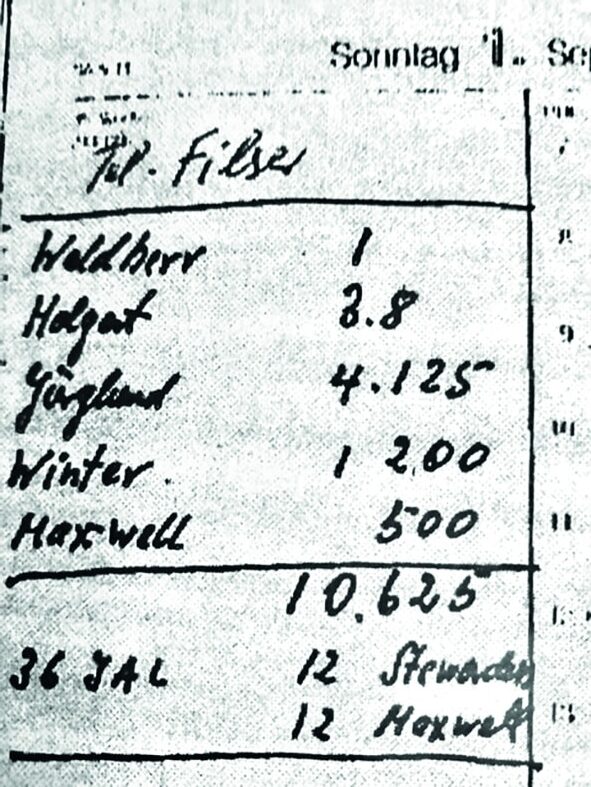 Sonntag 1. Sep
Tel. Filser
8
Waldherr 1
Holgart 3.8
9
Jürglund 4.125
10
Winter 1 200
Maxwell 500
11
10.625
36 JAL 12 Stewardess
12 Maxwell
13